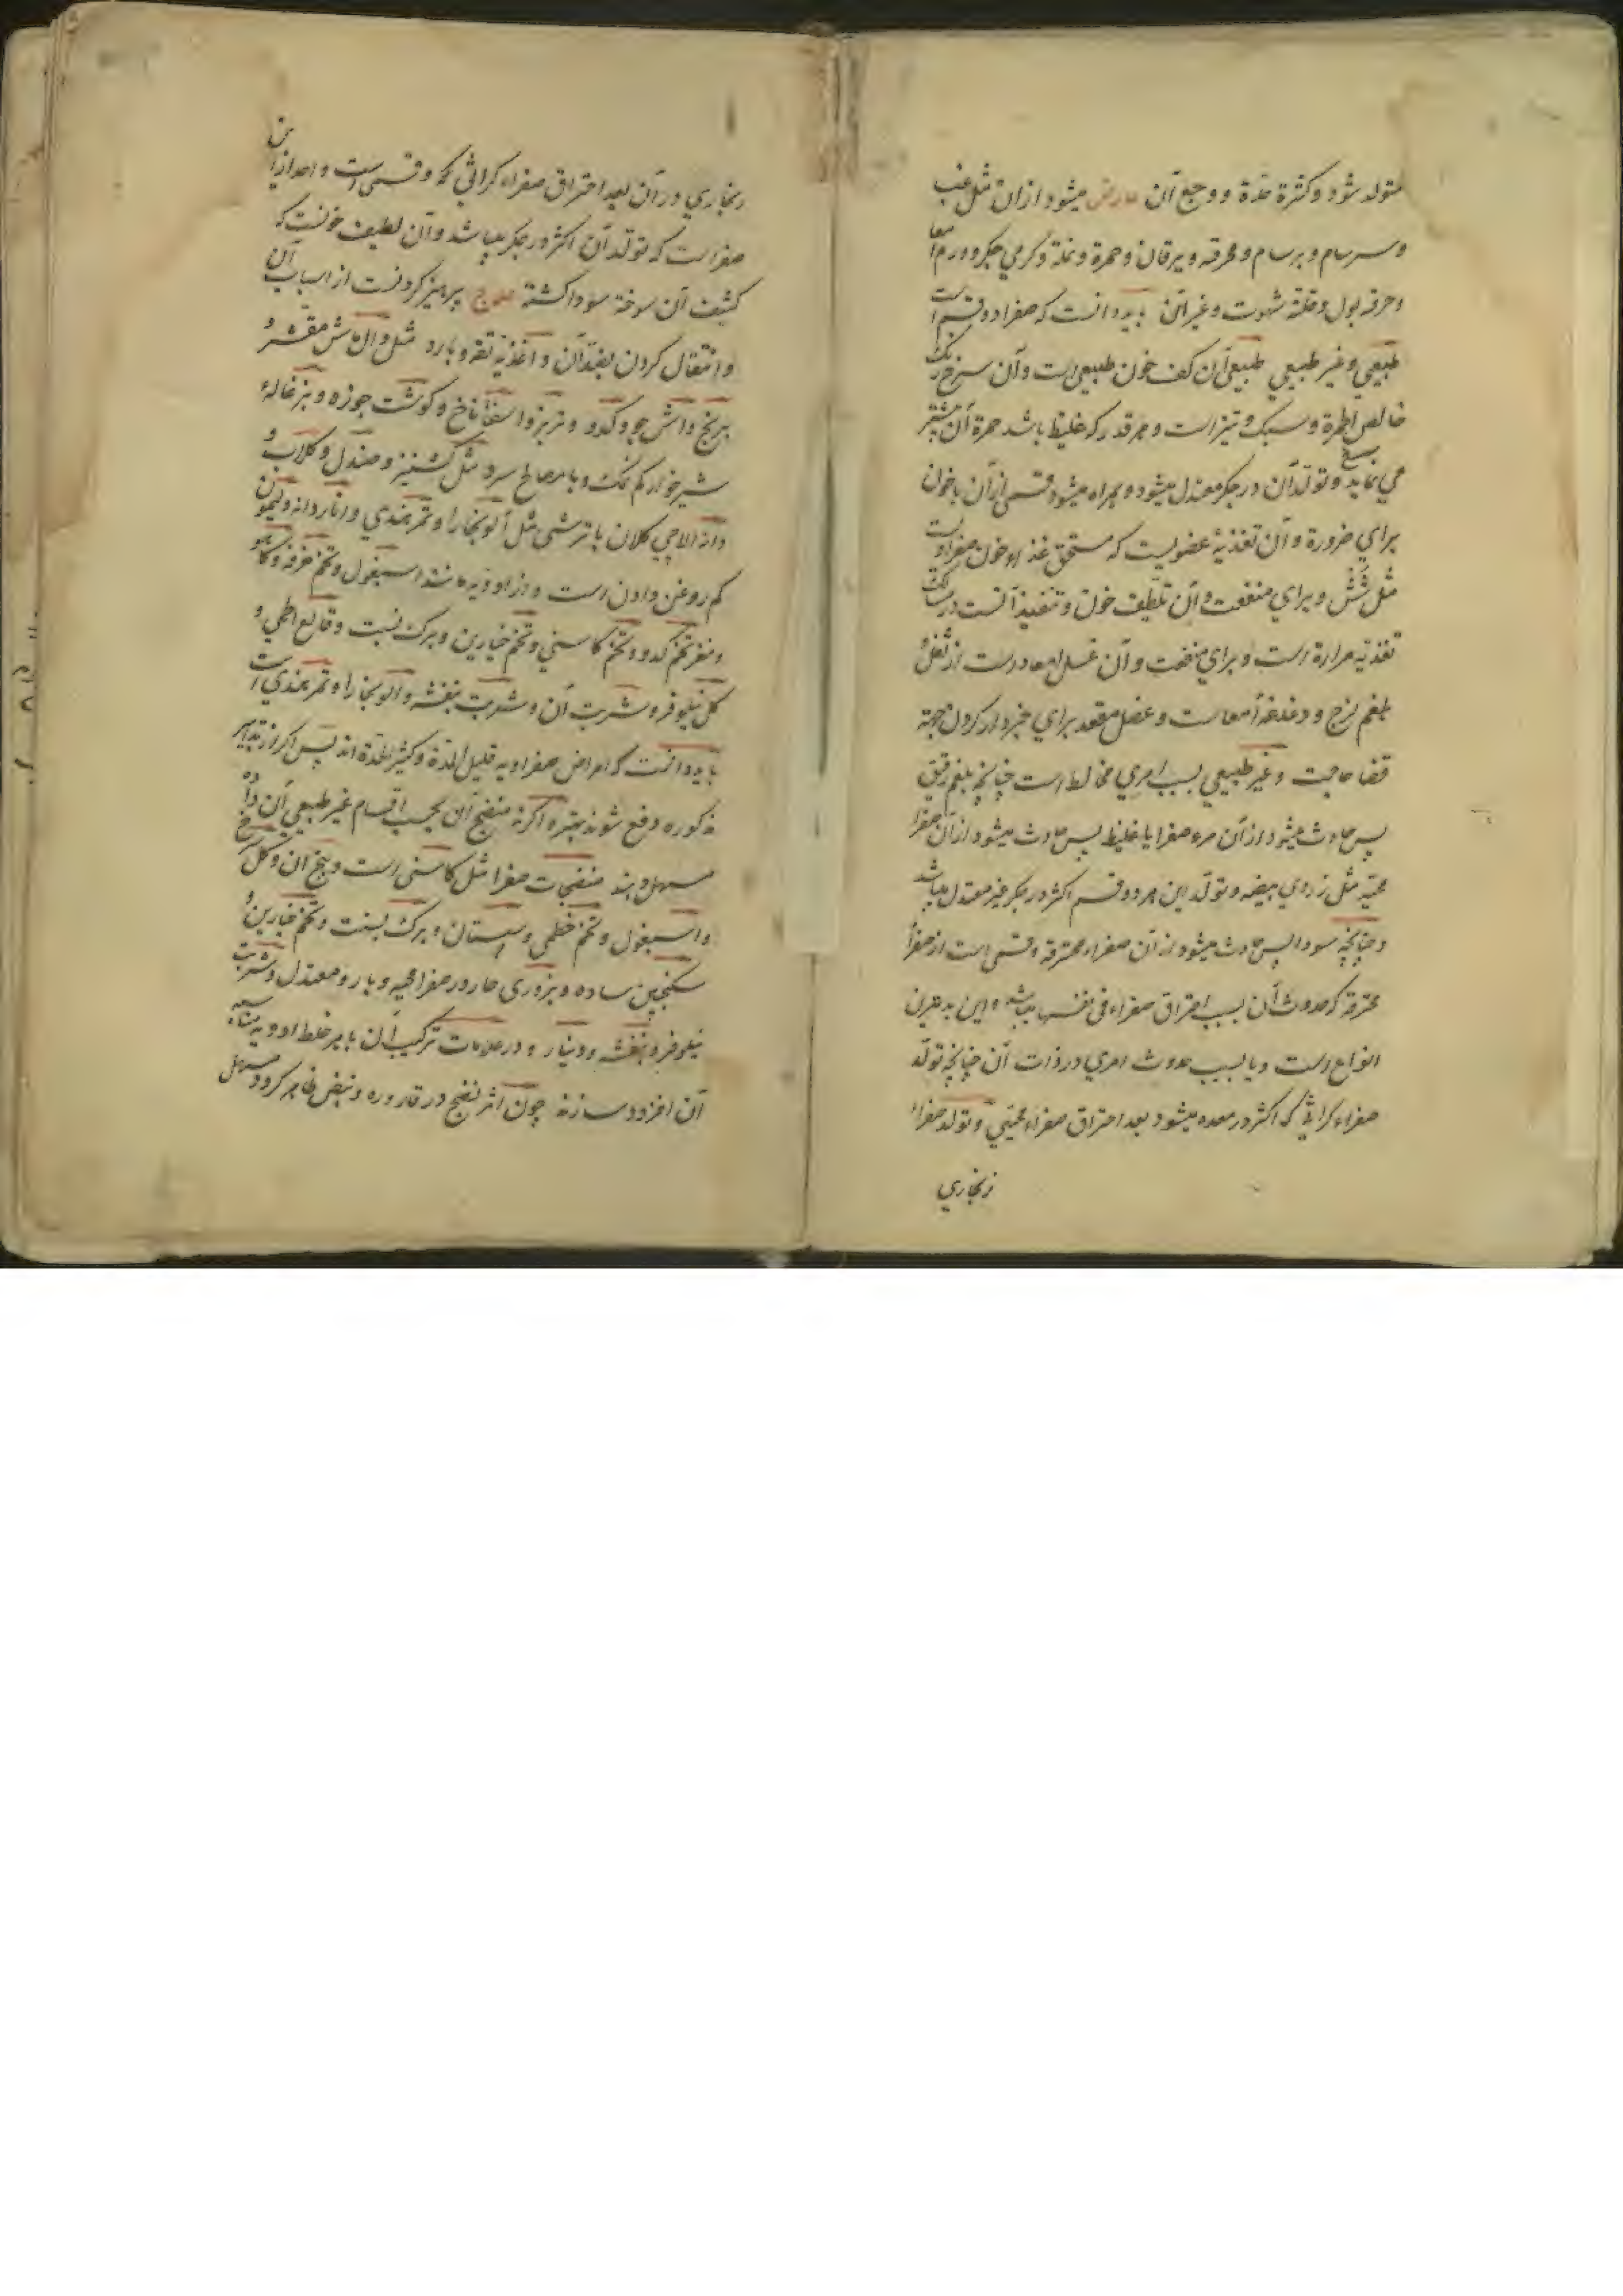 متولد شود و کثرة حدة و وجع آن عارض میشود از ان مثل غب
و سرسام و برسام و محرقه و یرقان و حمرة و نملة و گرمي جگر و ورم امعا
و حرقه بول و قلة شهوت و غیر آن باید دانست که صفرا دو قسم است
طبیعي و غیر طبیعي طبیعي آن کف خون طبیعي است و آن سرخ رنگ
خالص الحمرة و سبک و تیز است و هر قدر که غلیظ باشد حمرة آن بیشتر
مي نماید و تولد آن در جگر معتدل میشود و همراه میشود قسمي از آن با خون
براي ضرورة و آن تغذیۀ عضویست که مستحق غذاء خون صفراویست
مثل شش و براي منفعت و آن تلطیف خون و تنفیذ آنست در مسالک
تغذیه مراره است و براي منفعت و آن غسل امعا درست از ثفل و
بلغم لزج و دغدغه امعاست و عضل مقعد براي خبردار کردن بجهة
قضا حاجت و غیر طبیعي بسبب امري مخالط است چنانچه بلغم رقیق
پس حادث میشود از آن مره صفرا یا غلیظ پس حادث میشود از آن صفرا
محیه مثل زردي بیضه و تولد این هر دو قسم اکثر در جگر غیر معتدل میباشد
و چنانچه سودا پس حادث میشود از آن صفراء محترقه و قسمي است از صفرا
محترقه که حدوث آن بسبب احتراق صفراء في نفسها میباشد و این بدترین
انواع است و یا بسبب حدوث امري در ذات آن چنانچه تولد
صفراء کراثي که اکثر در معده میشود بعد احتراق صفراء محیي و تولد صفراء
زنجاري
زنجاري در آن بعد احتراق صفراء کراثي و قسمي است و احد از این
صفراست که تولد آن اکثر در جگر میباشد و آن لطیف خونست که
کثیف آن سوخته سودا گشته علاج پرهیز کردنست از اسباب آن
و انتقال کردن بضد آن و اغذیه تفه و بارد مثل دال ماش مقشر و
برنج و آش جو و کدو و تربز و اسفاناخ و گوشت چوزه و بزغاله
شیرخوار کم نمک و با مصالح سرد مثل کشنیز و صندل و گلاب و
دانه الاچي کلان با ترشي مثل آلوبخارا و تمرهندي و اناردانه و لیمون
کم روغن دادن است و از ادویه مانند اسبغول و تخم خرفه و کاهو
و مغز تخم کدو و تخم کاسني و تخم خیارین و برگ نسبت و قالع الحمي و
گل نیلوفر و شربت آن و شربت بنفشه و آلوبخارا و تمرهندي است
باید دانست که امراض صفراویه قلیل المدة و کثیر الحدة اند پس اگر از تدابیر
مذکوره دفع شوند بهتر و اگر نه منضج آن بحسب اقسام غیر طبیعي آن داده
مسهل دهند منضجات صفرا مثل کاسني است و بیخ آن و گل سرخ
و اسبغول و تخم خطمي و سپستان و برگ بسنت و تخم خیارین و
سکنجبین ساده و بزوري حار در صفرا محیه و بارد و معتدل و شربت
نیلوفر و بنفشه و دینار و در علامات ترکیب آن با هر خلط ادویه مناسبه
آن افزوده سازند چون اثر نضج در قاروره و نبض ظاهر گردد مسهل